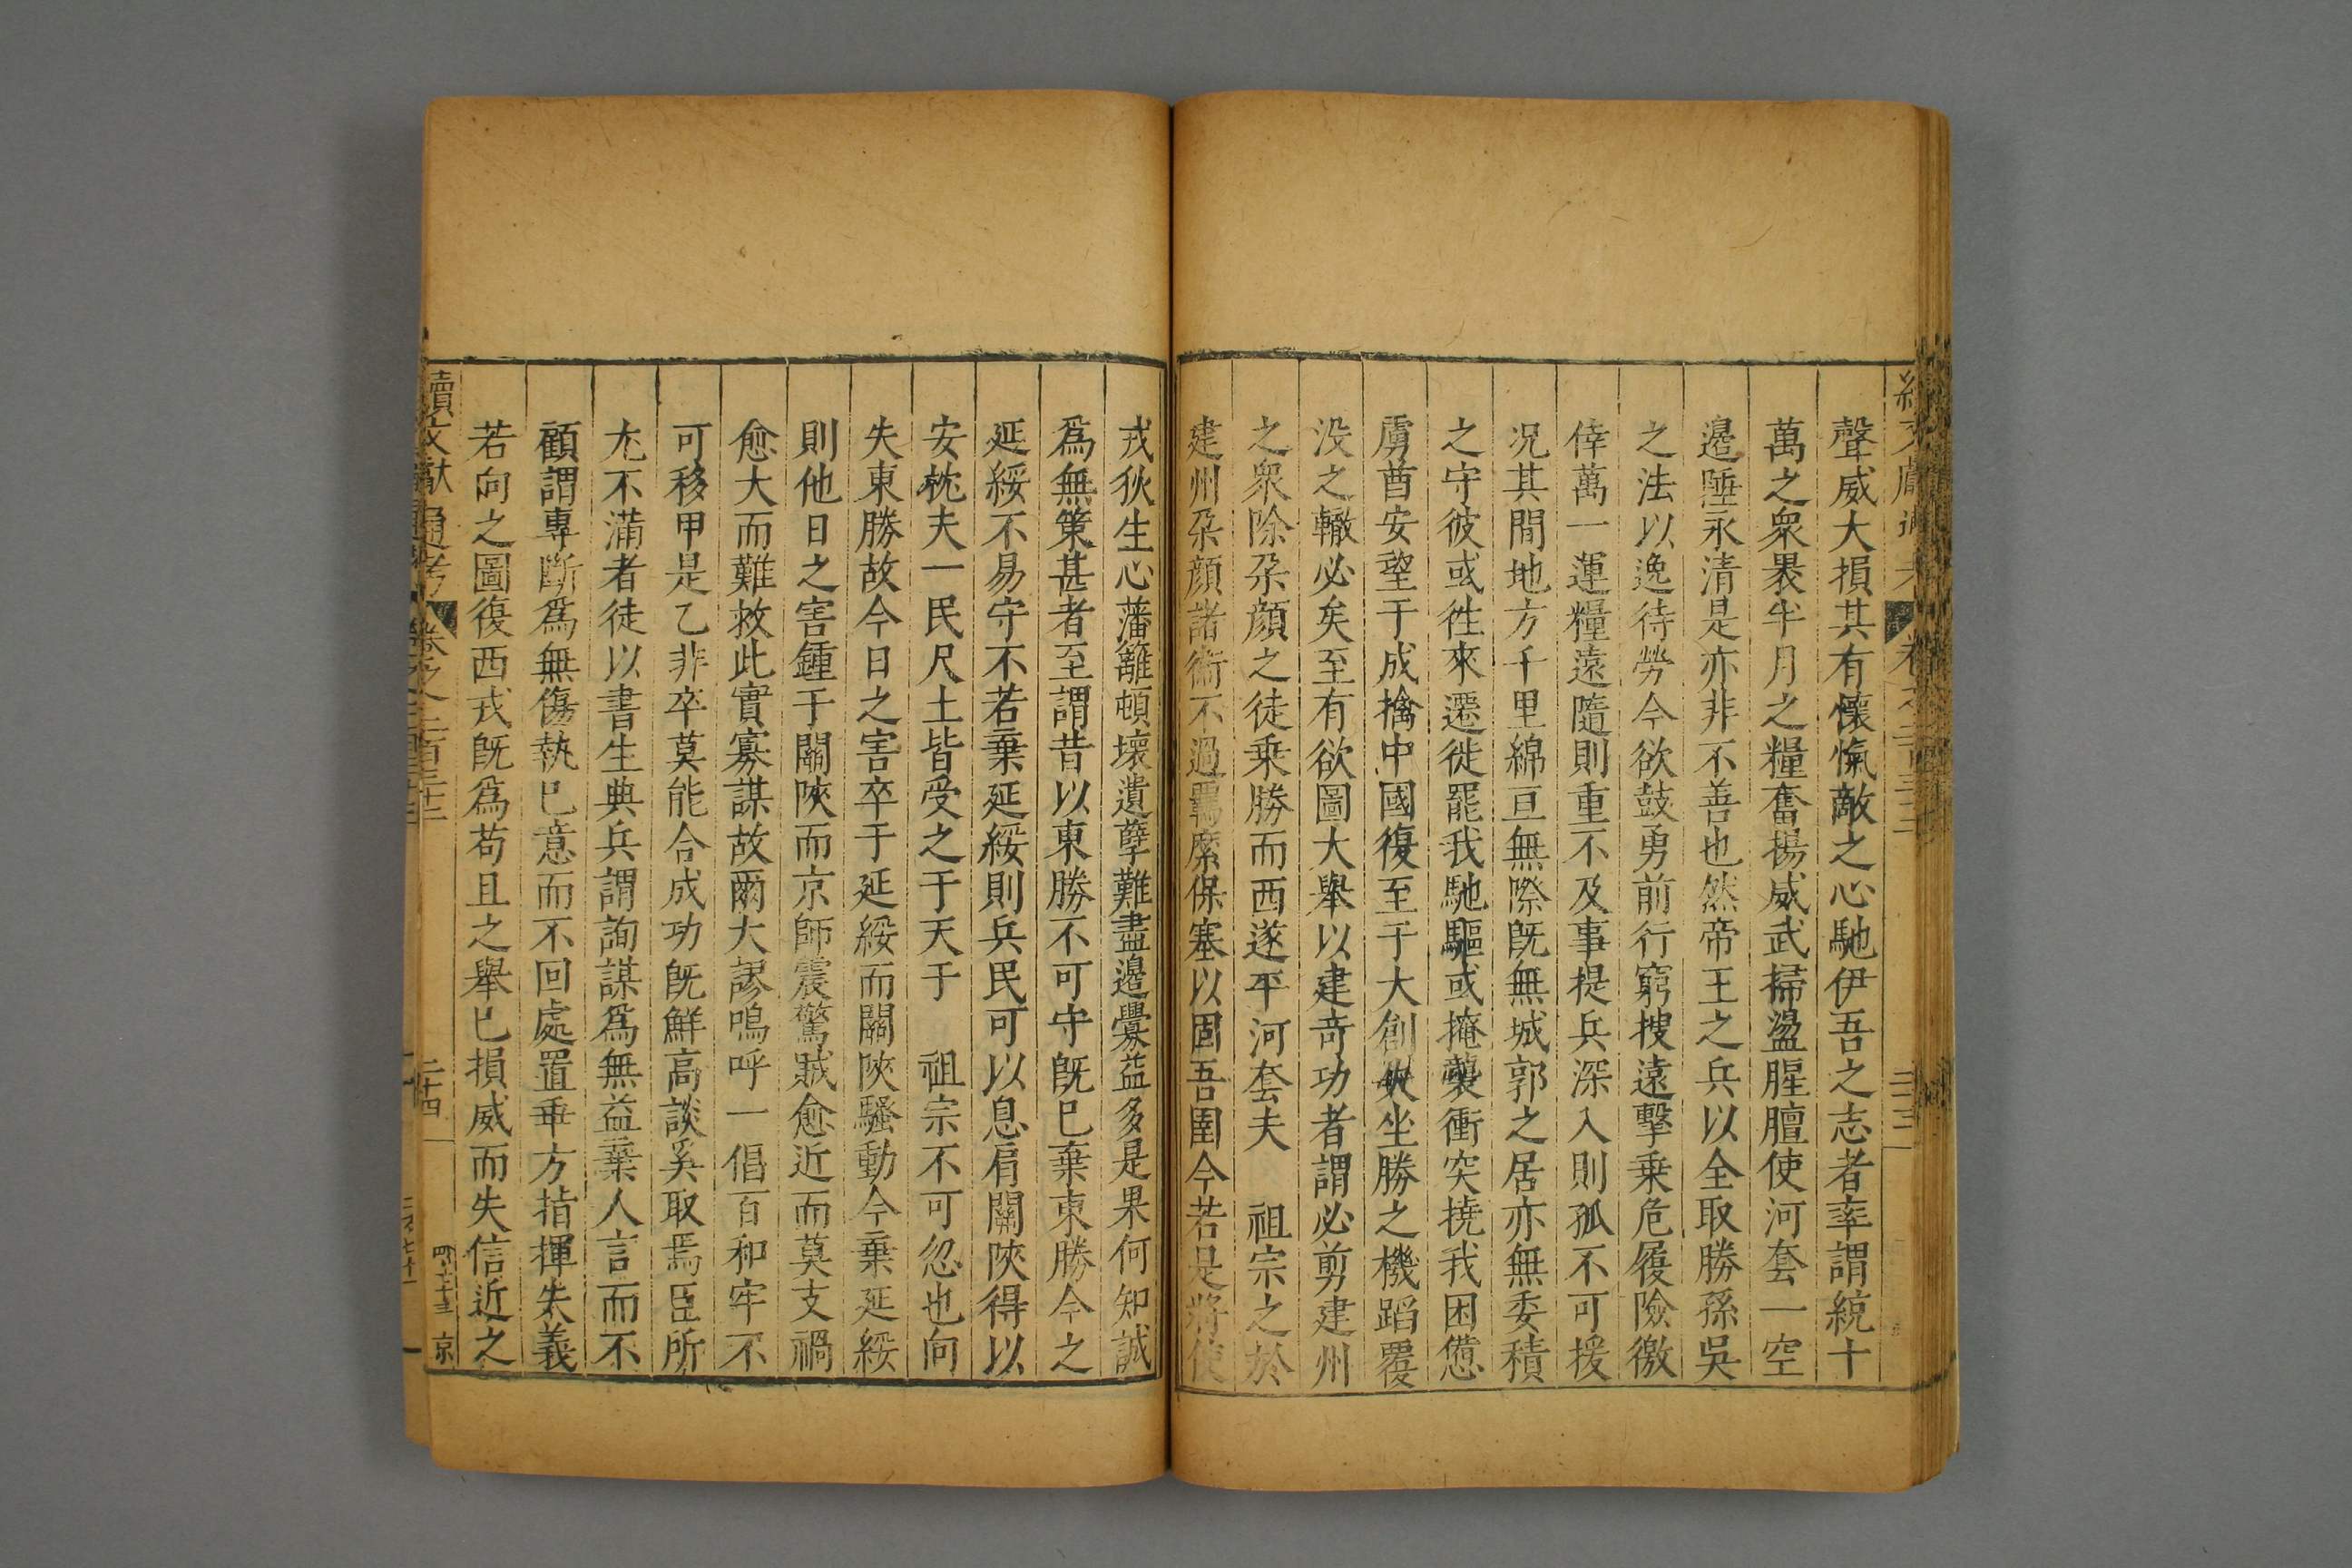 聲威大損其有懷愾敵之心馳伊吾之志者率謂統十
萬之衆褁半月之糧奮揚威武掃盪腥膻使河套一空
邊陲永清是亦非不善也然帝王之兵以全取勝孫吳
之法以逸待勞今欲鼓勇前行窮搜遠擊乗危履險徼
倖萬一運糧遠隨則重不及事提兵深入則孤不可援
况其間地方千里綿亘無際既無城郭之居亦無委積
之守彼或徃來遷徙罷我馳驅或掩襲衝突撓我困憊
虜酋安望于成擒中國復至于大創坐勝之機蹈覆
没之轍必矣至有欲圖大舉以建竒功者謂必剪建州
之衆除朶顔之徒乗勝而西遂平河套夫 祖宗之於
建州朶顔諸衛不過羈縻保塞以固吾圉今若是將使
戎狄生心藩籬頓壞遺孽難盡邊釁益多是果何知誠
爲無策甚者至謂昔以東勝不可守既巳棄東勝今之
延綏不易守不若棄延綏則兵民可以息肩關陜得以
安枕夫一民尺土皆受之于天于 祖宗不可忽也向
失東勝故今日之害卒于延綏而關陜騷動今棄延綏
則他日之害鍾于關陜而京師震驚賊愈近而莫支禍
愈大而難救此實寡謀故爾大謬嗚呼一倡百和牢不
可移甲是乙非卒莫能合成功既鮮高談奚取焉臣所
尤不滿者徒以書生典兵謂詢謀爲無益棄人言而不
顧謂專斷爲無傷執巳意而不回處置乖方指揮失義
若向之圖復西戎既爲苟且之舉巳損威而失信近之
續文獻通考 卷之二百三十二 二十四